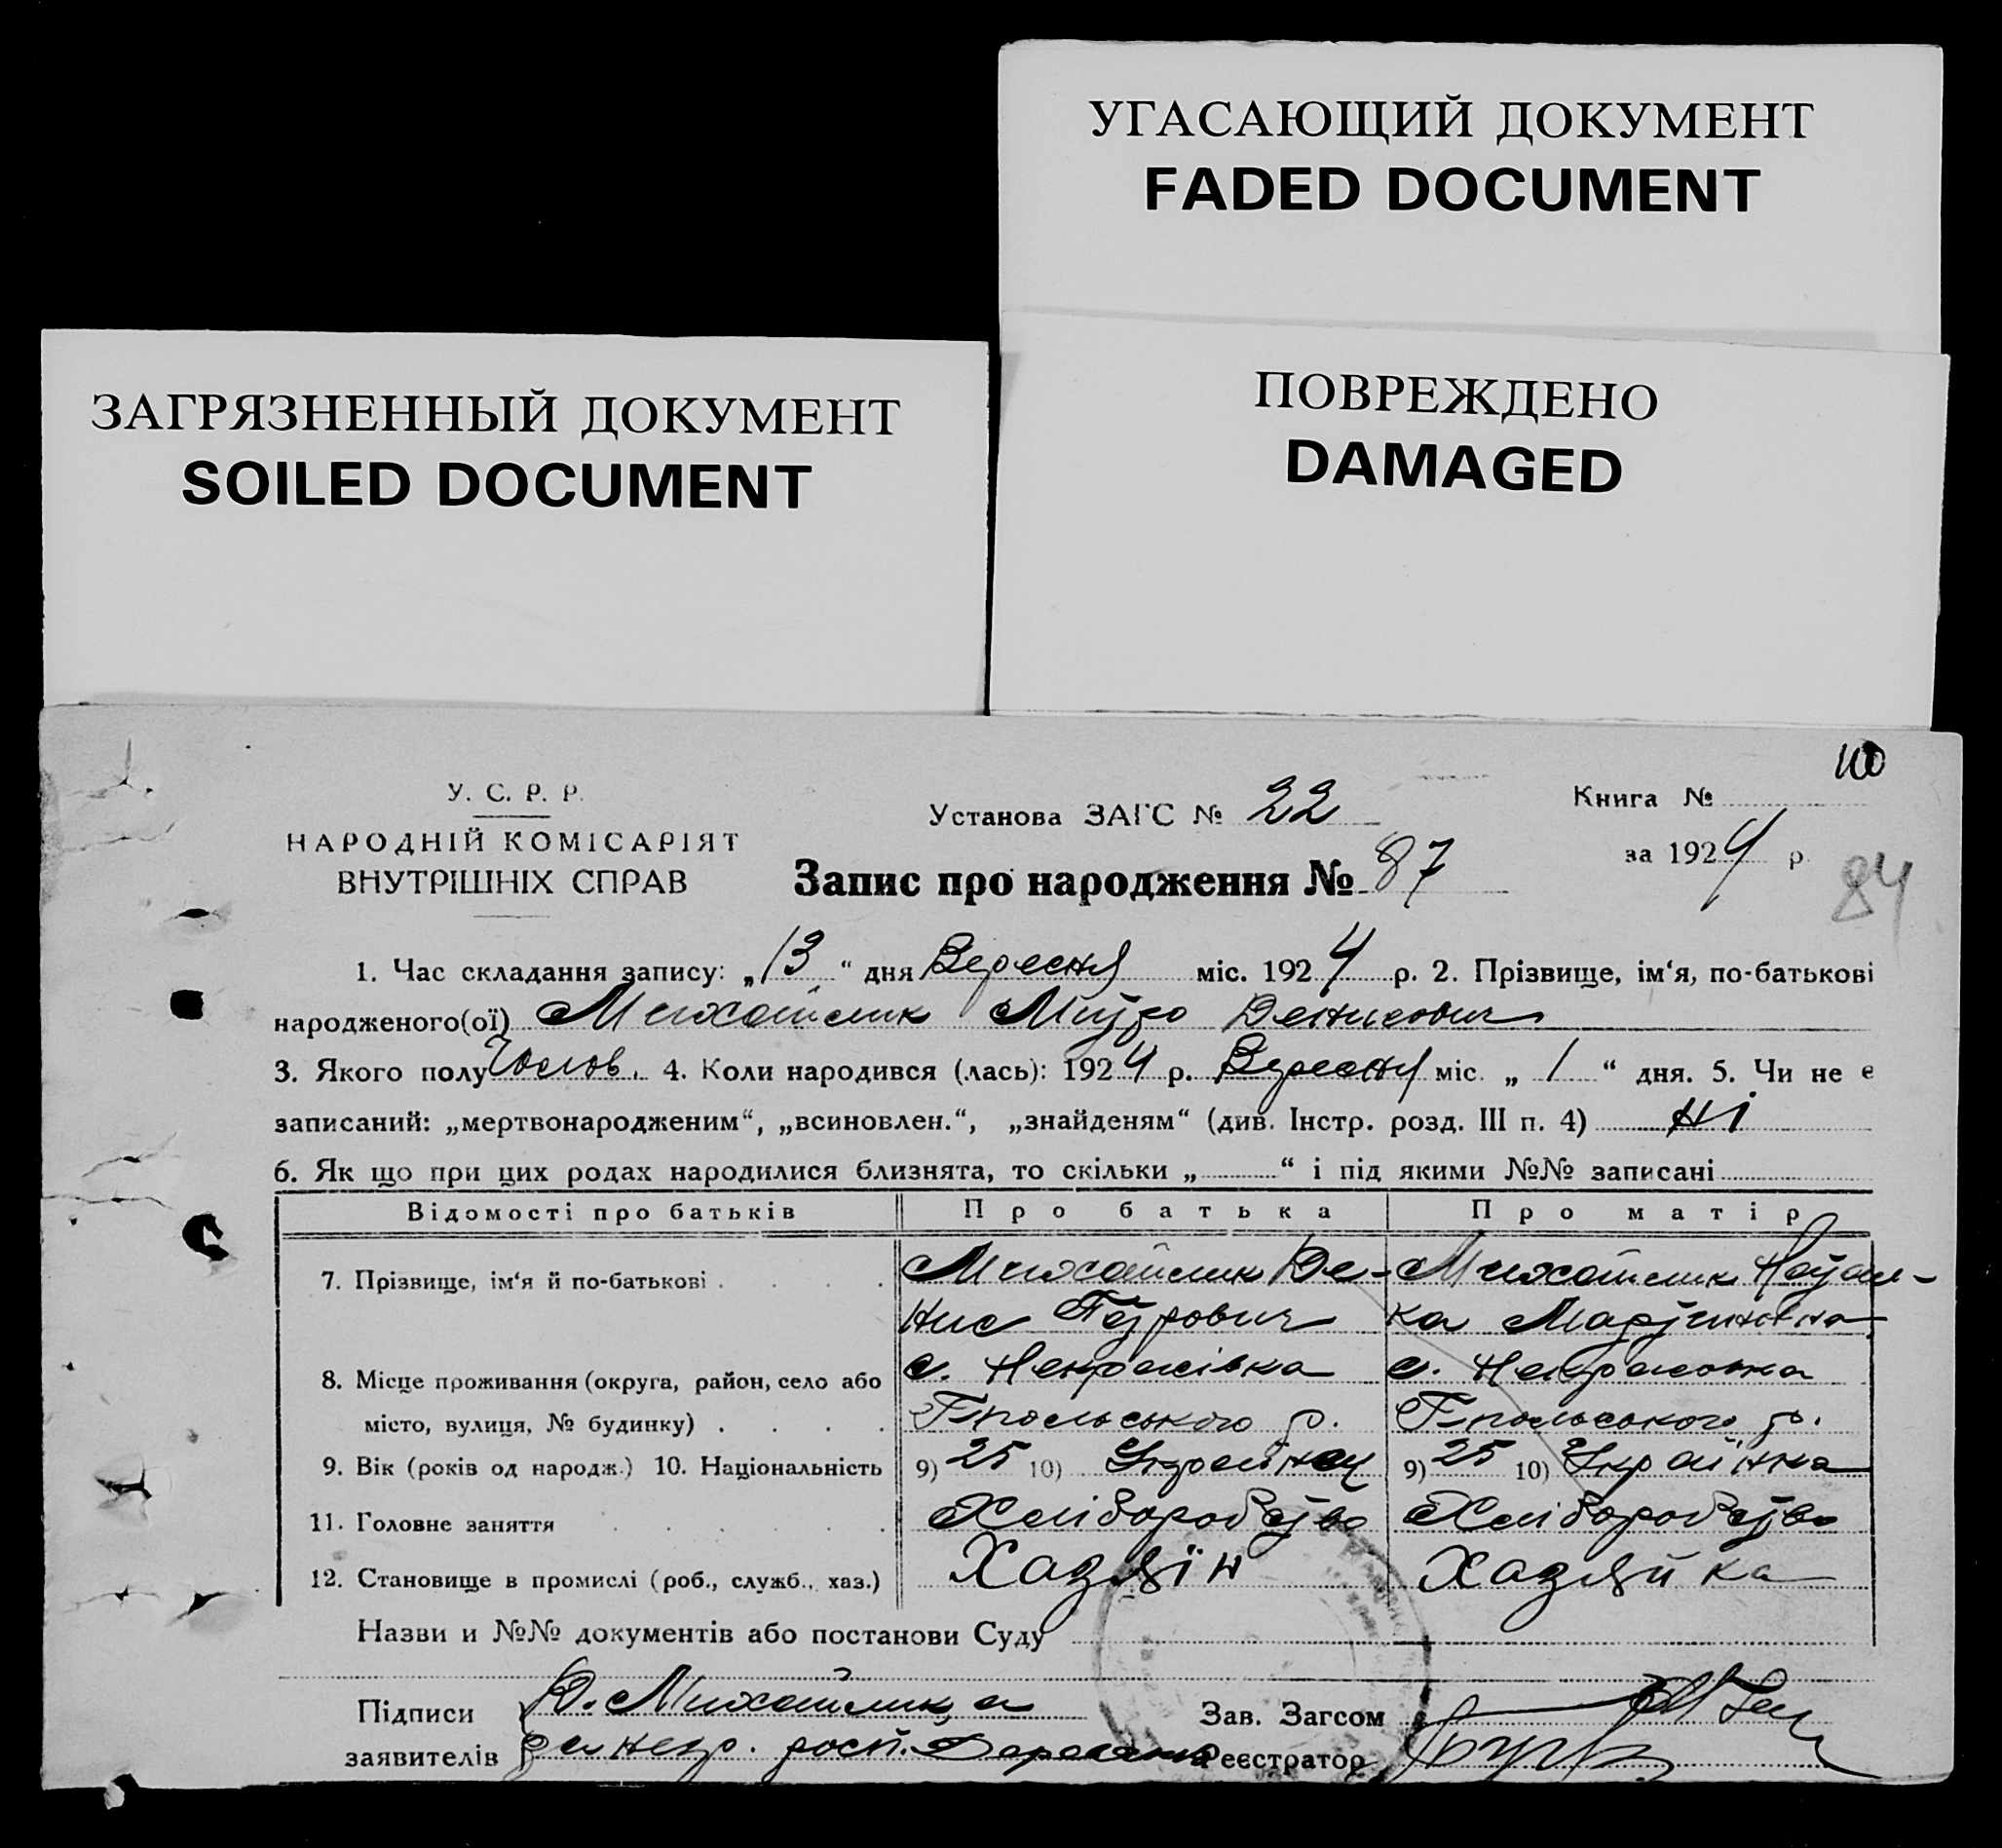 УГАСАЮЩИЙ ДОКУМЕНТ
FADED DOCUMENT
ЗАГРЯЗНЕННЫЙ ДОКУМЕНТ
SOILED DOCUMENT
ПОВРЕЖДЕНО
DAMAGED
100
У. С. Р. Р.
НАРОДНІЙ КОМІСАРІЯТ
ВНУТРІШНІХ СПРАВ
Установа ЗАГС № 22
Книга №
за 1924 р
84
Запис про народження № 87
1. Час складання запису: „13“ дня Вересня міс. 1924 р. 2. Прізвище, ім‘я, по-батькові
народженого(ої) Михайлик Денисович
3. Якого полу Чолов. 4. Коли народився (лась): 1924 р. Вересня міс. „1“ дня. 5. Чи не є
записаний: „мертвонародженим“, „всиновлен.“, „знайденям“ (див. Інстр. розд. III п. 4) ні
6. Як що при цих родах народилися близнята, то скільки „ “ і під якими №№ записані
Відомості про батьків Про батька Про матір
7. Прізвище, ім‘я й по-батькові Михайлик Де- Михайлик Натал-
нис Петрович ка Мартинівна
8. Місце проживання (округа, район, село або с. Некрасівка с. Некрасовка
місто, вулиця, № будинку) Тпольського р. Тпольського р.
9. Вік (років од народж.) 10. Національність 9) 25 10) Українец 9) 25 10) Українка
11. Головне заняття Хліборобство Хліборобство
12. Становище в промислі (роб., служб., хаз.) Хазяїн Хазяйка
Назви и №№ документів або постанови Суду
Підписи Д. Михайлика Зав. Загсом
заявителів Реєстратор